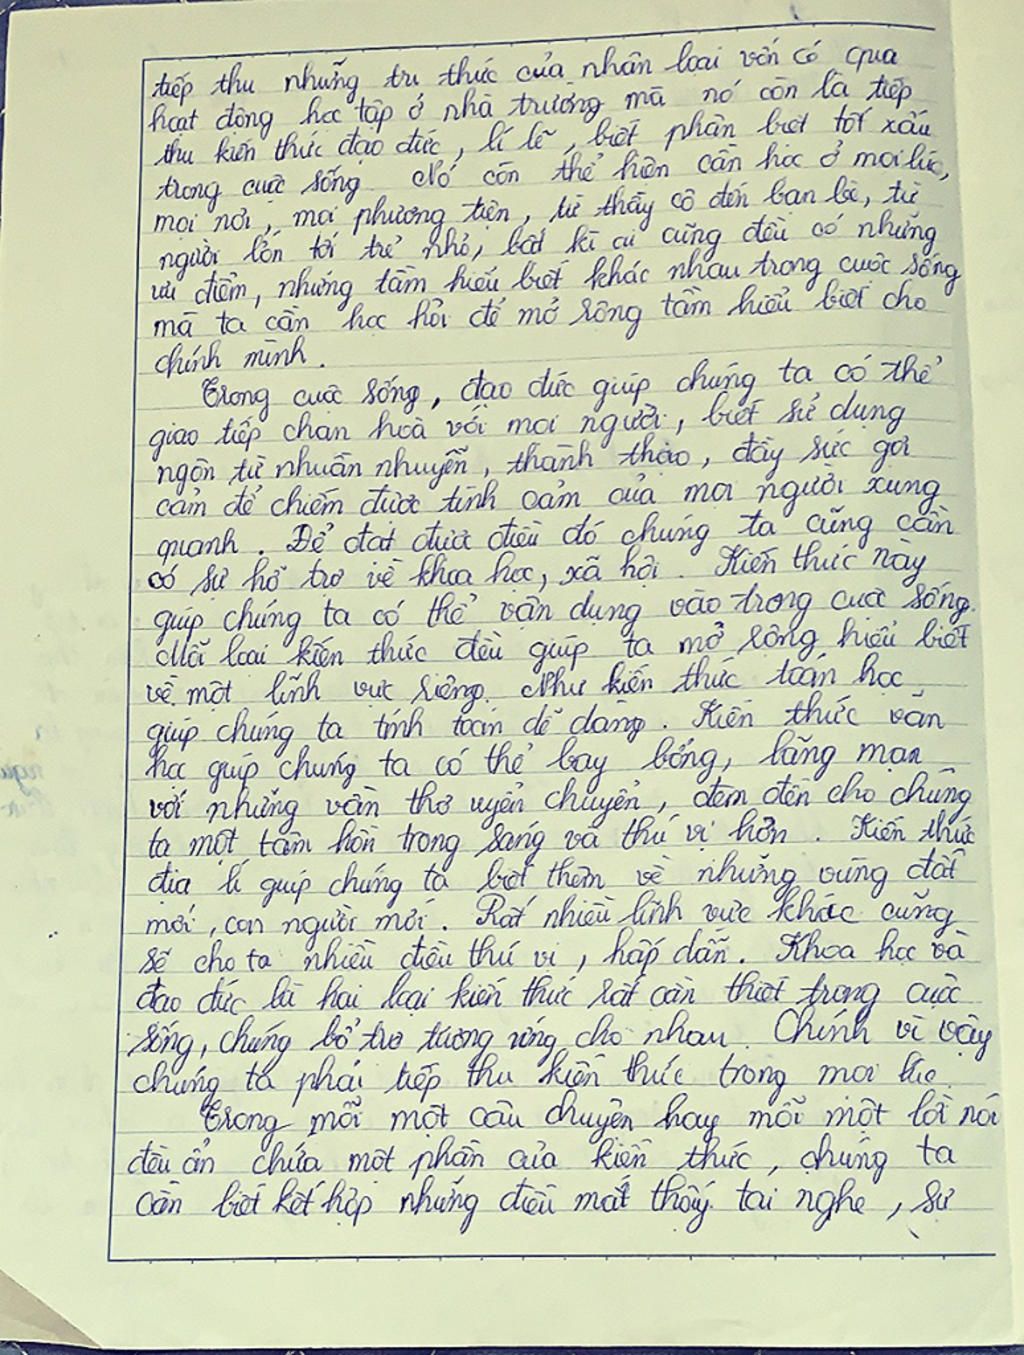 tiếp thu những tri thức của nhân loại vốn có qua
hoạt động học tập ở nhà trường mà nó còn là tiếp
thu kiến thức đạo đức, lí lẽ, biết phân biệt tốt xấu
trong cuộc sống. Nó còn thể hiện cần học ở mọi lúc,
mọi nơi, mọi phương tiện, từ thầy cô đến bạn bè, từ
người lớn tới trẻ nhỏ, bất kì ai cũng đều có những
ưu điểm, những tầm hiểu biết khác nhau trong cuộc sống
mà ta cần học hỏi để mở rộng tầm hiểu biết cho
chính mình.
Trong cuộc sống, đạo đức giúp chúng ta có thể
giao tiếp chan hoà với mọi người, biết sử dụng
ngôn từ nhuần nhuyễn, thành thạo, đầy sức gợi
cảm để chiếm được tình cảm của mọi người xung
quanh. Để đạt được điều đó chúng ta cũng cần
có sự hỗ trợ về khoa học, xã hội. Kiến thức này
giúp chúng ta có thể vận dụng vào trong cuộc sống.
Mỗi loại kiến thức đều giúp ta mở rộng hiểu biết
về một lĩnh vực riêng. Như kiến thức toán học
giúp chúng ta tính toán dễ dàng. Kiến thức văn
học giúp chúng ta có thể bay bổng, lãng mạn
với những vần thơ uyển chuyển, đem đến cho chúng
ta một tâm hồn trong sáng và thú vị hơn. Kiến thức
địa lí giúp chúng ta biết thêm về những vùng đất
mới, con người mới. Rất nhiều lĩnh vực khác cũng
sẽ cho ta nhiều điều thú vị, hấp dẫn. Khoa học và
đạo đức là hai loại kiến thức rất cần thiết trong cuộc
sống, chúng bổ trợ tương ứng cho nhau. Chính vì vậy
chúng ta phải tiếp thu kiến thức trong mọi lúc.
Trong mỗi một câu chuyện hay mỗi một lời nói
đều ẩn chứa một phần của kiến thức, chúng ta
cần biết kết hợp những điều mắt thấy tai nghe, sự